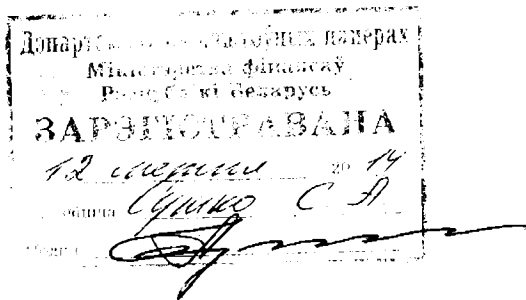 Дэпартамент па каштоўных паперах
Міністэрства фінансаў
Рэспублікі Беларусь
ЗАРЭГІСТРАВАНА
12 20 14
Сушко С А